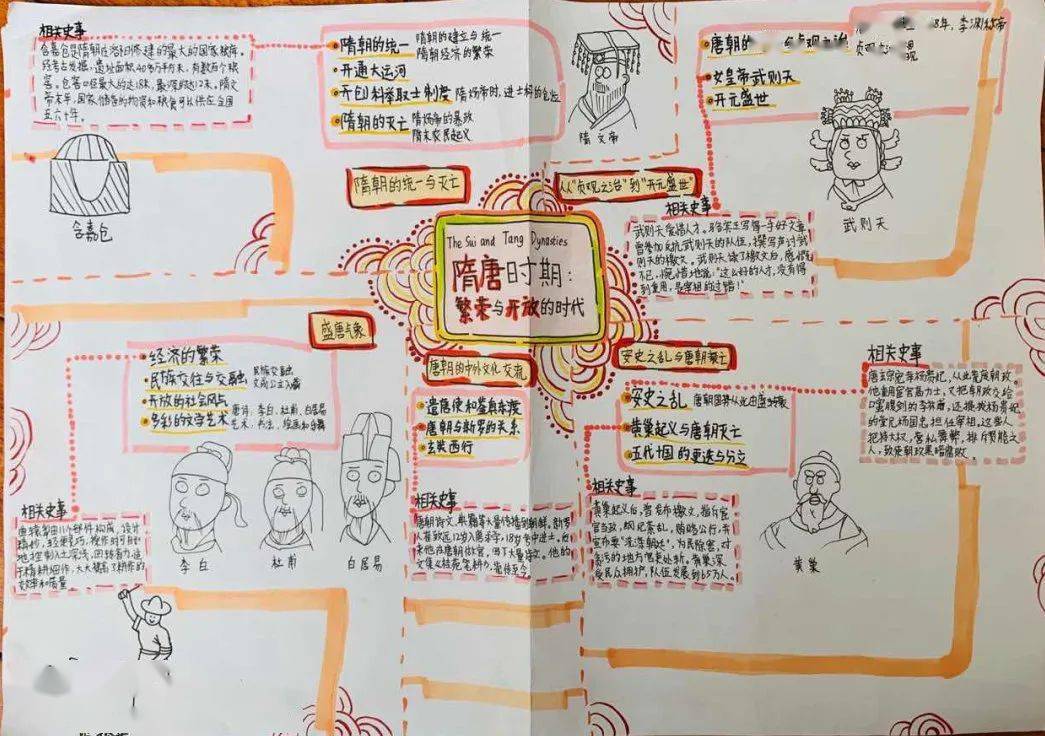 相关史事
含嘉仓是隋朝在洛阳修建的最大的国家粮库。
经考古发掘，遗址面积40多万平方米，有数百个粮
窖。仓窖口径最大的达18米，最深的达12米。隋文
帝末年，国家储备的物资和粮食可以供应全国
五六十年。
含嘉仓
隋朝的统一 隋朝的建立与统一
隋朝经济的繁荣
开通大运河
开创科举取士制度 隋炀帝时，进士科的创立
隋朝的灭亡 隋炀帝的暴政
隋末农民起义
隋文帝
隋朝的统一与灭亡
唐朝的
8年，李渊称帝
女皇帝武则天
开元盛世
武则天
从“贞观之治”到“开元盛世”
相关史事
武则天爱惜人才。骆宾王写得一手好文章
曾参加反抗武则天的队伍，撰写声讨武
则天的檄文。武则天读了檄文后，感慨
不已，惋惜地说：“这么好的人才，没有得
到重用，是宰相的过错！”
The Sui and Tang Dynasties
隋唐时期：
繁荣与开放的时代
盛唐气象
经济的繁荣
民族交往与交融 民族交融
文成公主入藏
开放的社会风气
多彩的文学艺术 唐诗：李白、杜甫、白居易
艺术：书法、绘画和
李白
杜甫
白居易
相关史事
曲辕犁由11个部件构成，设计
精妙，轻便灵巧，操作时可自如
地控制入土深浅，回转省力，适
于精耕细作，大大提高了耕作的
效率和质量
唐朝的中外文化交流
遣唐使和鉴真东渡
唐朝与新罗的关系
玄奘西行
相关史事
唐朝诗文、
人崔致远12岁入唐求学，18岁考中进士。后
来他在唐朝做官，留下大量诗文。他的
文集《桂苑笔耕》，流传至今。
安史之乱与唐朝衰亡
安史之乱 唐朝国势从此由盛转衰
黄巢起义与唐朝灭亡
五代十国的更迭与分立
相关史事
唐玄宗宠幸杨贵妃，从此荒废朝政。
他重用宦官高力士，又把朝政交给
口蜜腹剑的李林甫，还提拔杨贵妃
的堂兄杨国忠，担任宰相。这些人
把持大权，营私舞弊，排斥贤能之
人，致使朝政黑暗腐败。
黄巢
相关史事
黄巢起义后，曾发布檄文，指斥宦
官当政，纲纪紊乱，贿赂公行，并
贪污的地方官吏处斩。黄巢深
受民众拥护，队伍发展到65万人。